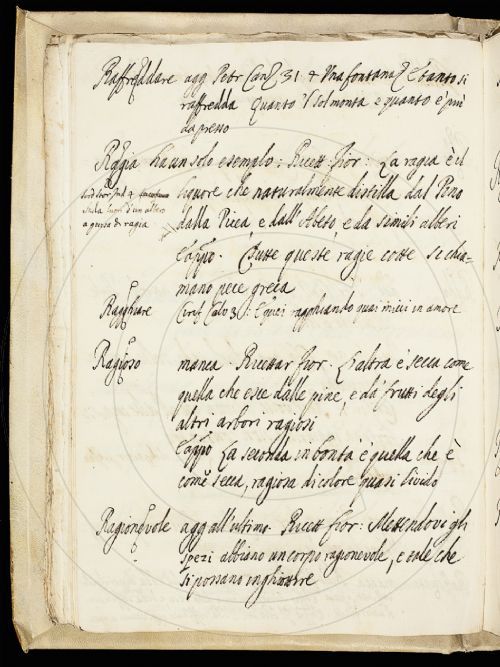 Raffreddare agg Petr Canz 31 + Una fontana Z E tanto si
raffredda Quanto 'l sol monta e quanto è più
da presso
Ragia ha un solo esempio: Ricett fior: La ragia è il
liquore che naturalmente distilla dal Pino
dalla Picea e dall'Abeto e da simili alberi
stilla fuori d'un albero
a guisa di ragia
E appo. Tutte queste ragie cotte si chia-
mano pece greca
Ragghiare Ciriff Calv 3: E quei ragghiando quasi mici in amore
Ragioso manca. Ricettar fior. L'altra è secca come
quella che esce dalle pine, e da' frutti degli
altri arbori ragiosi
E appo La seconda in bontà è quella che è
come secca, ragiosa di colore quasi livido
Ragionevole agg all'ultimo. Ricett fior: Mettendovi gli
spezi abbiano un corpo ragionevole, e tale che
si possano inghiottire